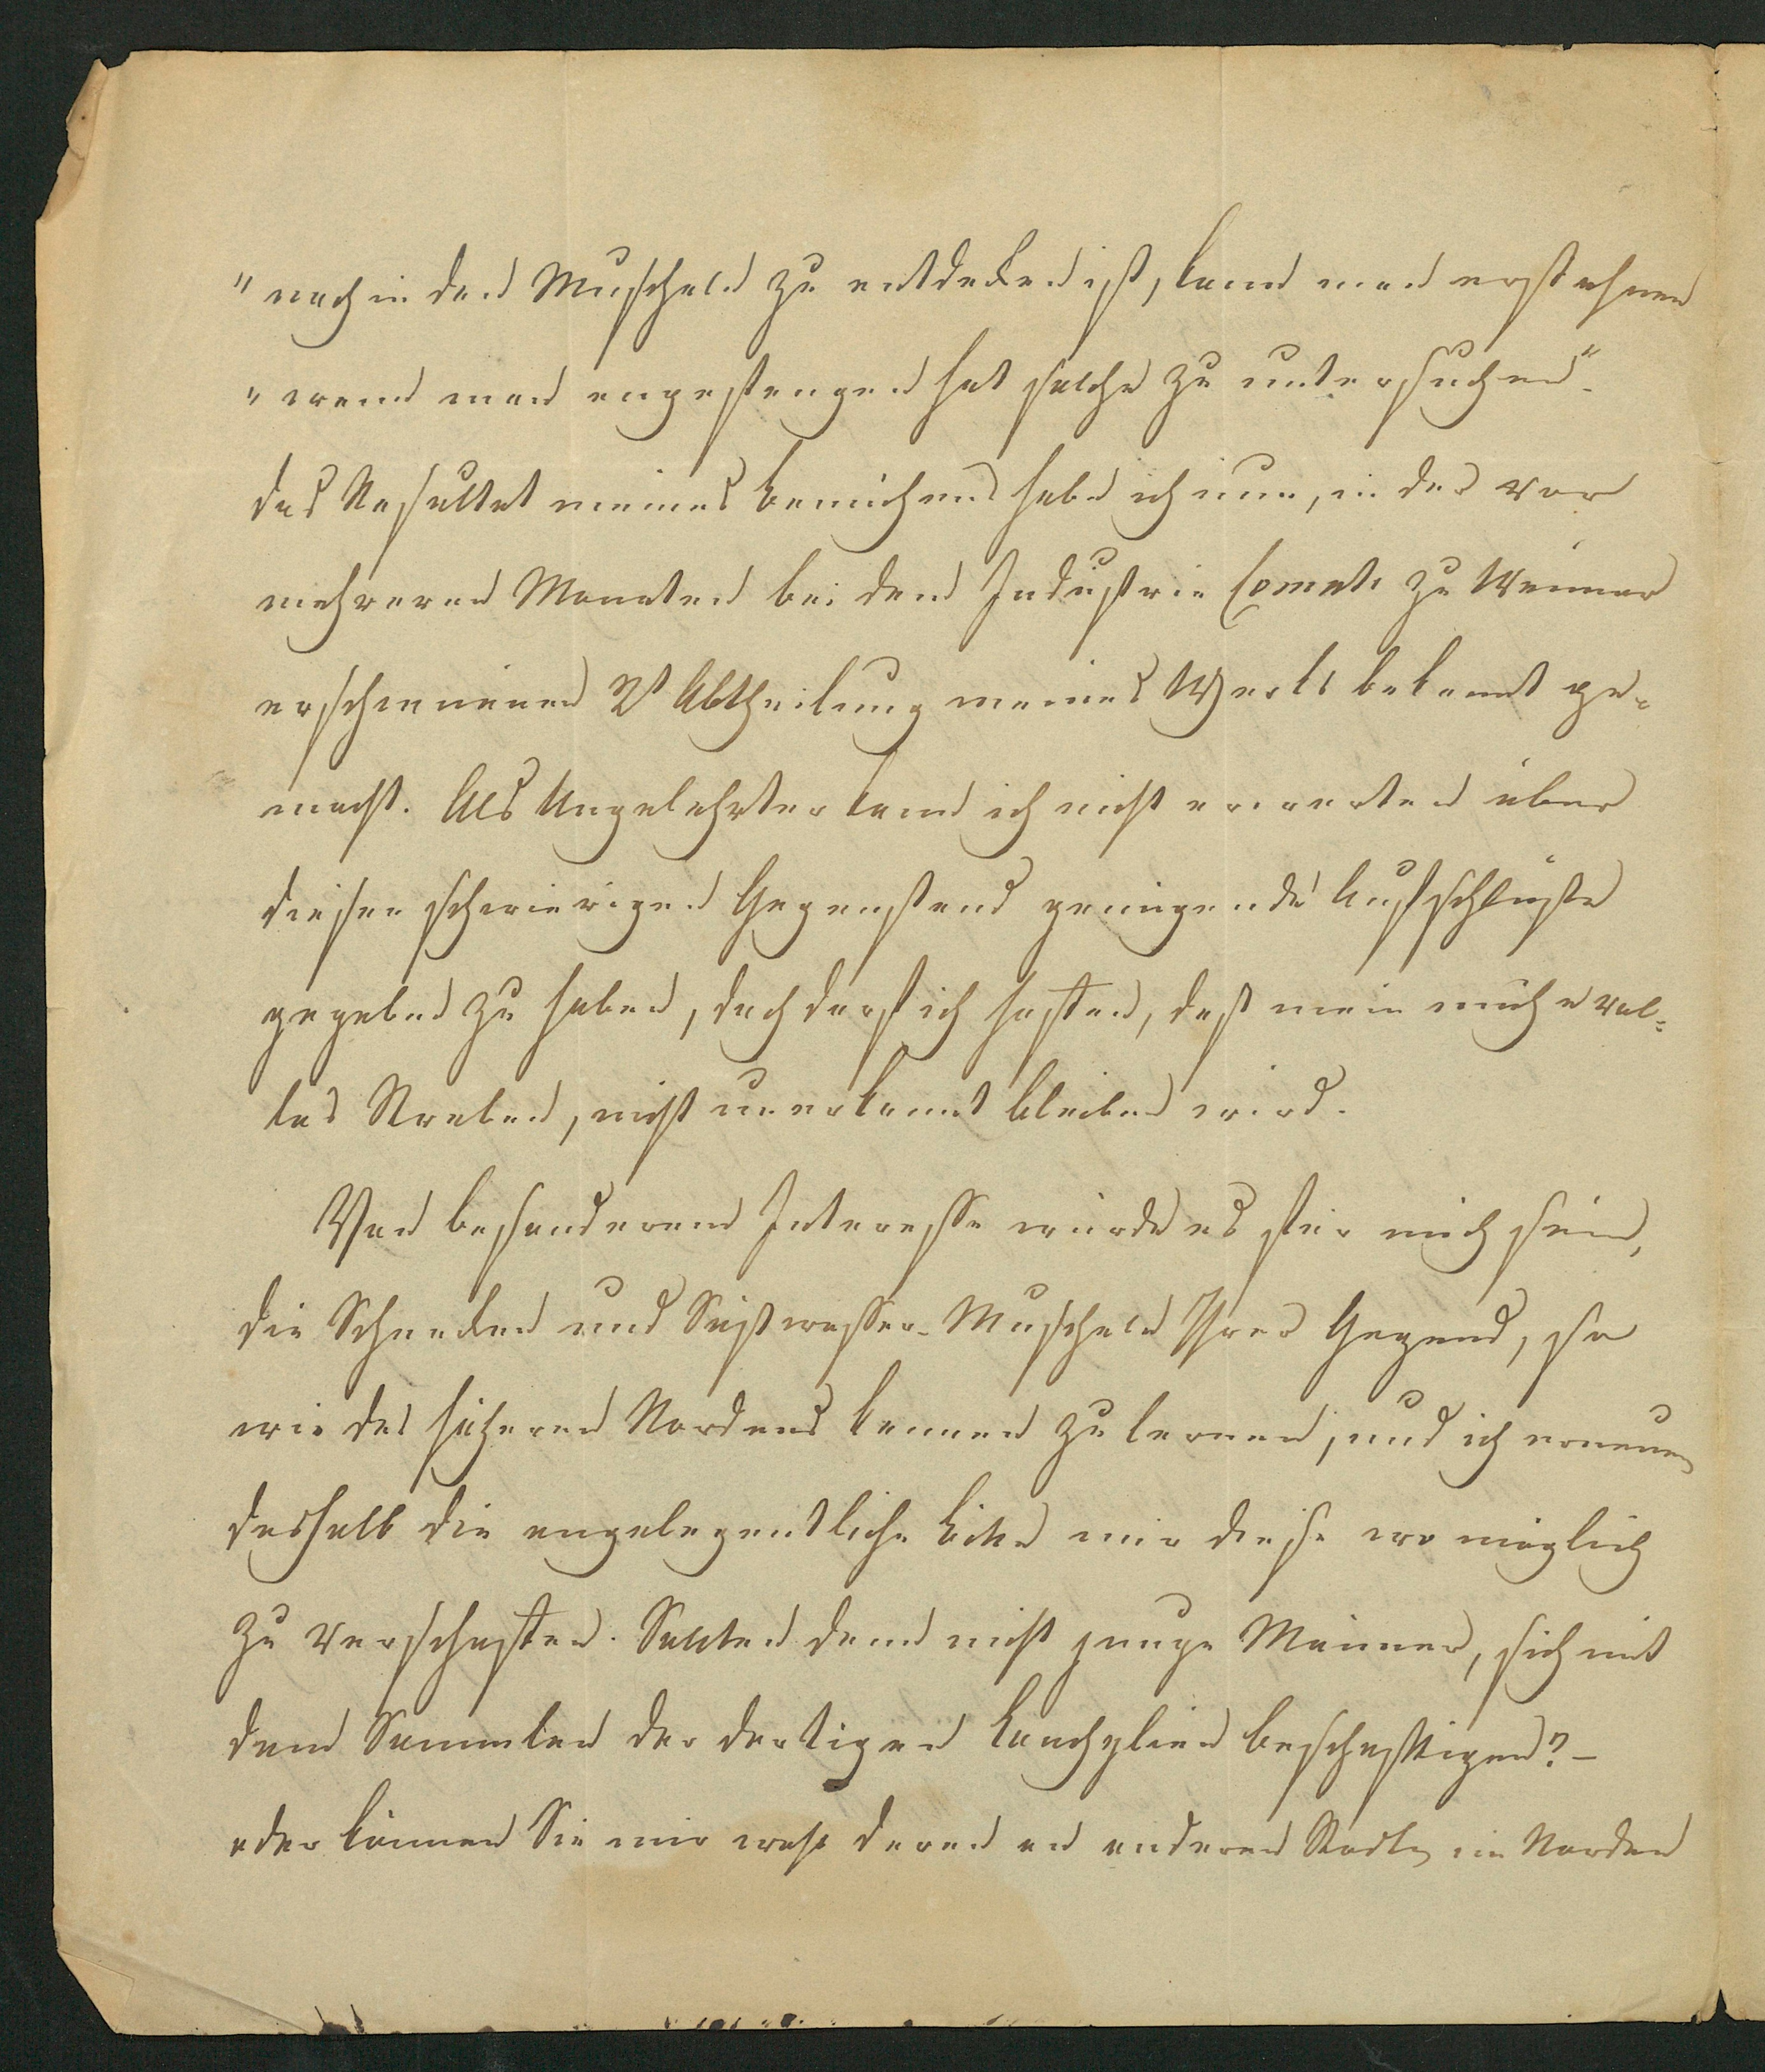 "noch in den Muscheln zu entdeken ist, kann man erst ahnen
"wenn man angefangen hat solche zu untersuchen".
das Resultat meines bemühens habe ich nun, in der vor
mehreren Monaten bei dem Industrie Comnt. zu Weimar
erschienenen 2t Abtheilung meines Werks bekannt ge-
macht. Als Ungelehrter kann ich nicht erwarten über
diesen schwierigen Gegenstand genügende Aufschlüsse
gegeben zu haben, doch darf ich hoffen, daß mein mühevol-
les Streben, nicht unerkannt bleiben wird.
Von besonderem Interesse würde es für mich sein,
die Schneken und Süßwasser-Muscheln Ihrer Gegend, so
wie des höheren Nordens kennen zu lernen, und ich erneure
deshalb die angelegentliche bitte mir diese wo möglich
zu verschaffen. Sollten denn nicht junge Männer, sich mit
dem Sammlen der dortigen Conchylien beschäftigen? –
oder können Sie mir wohl deren an anderen Stadten im Norden